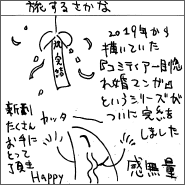 旅するさかな
祝完結
2019年から
描いていた
『コミティアー目惚
れ婚マンガ』
というシリーズが
ついに完結
しました
新刊
たくさん
お手に
とって
頂き
カッター
Happy
感無量